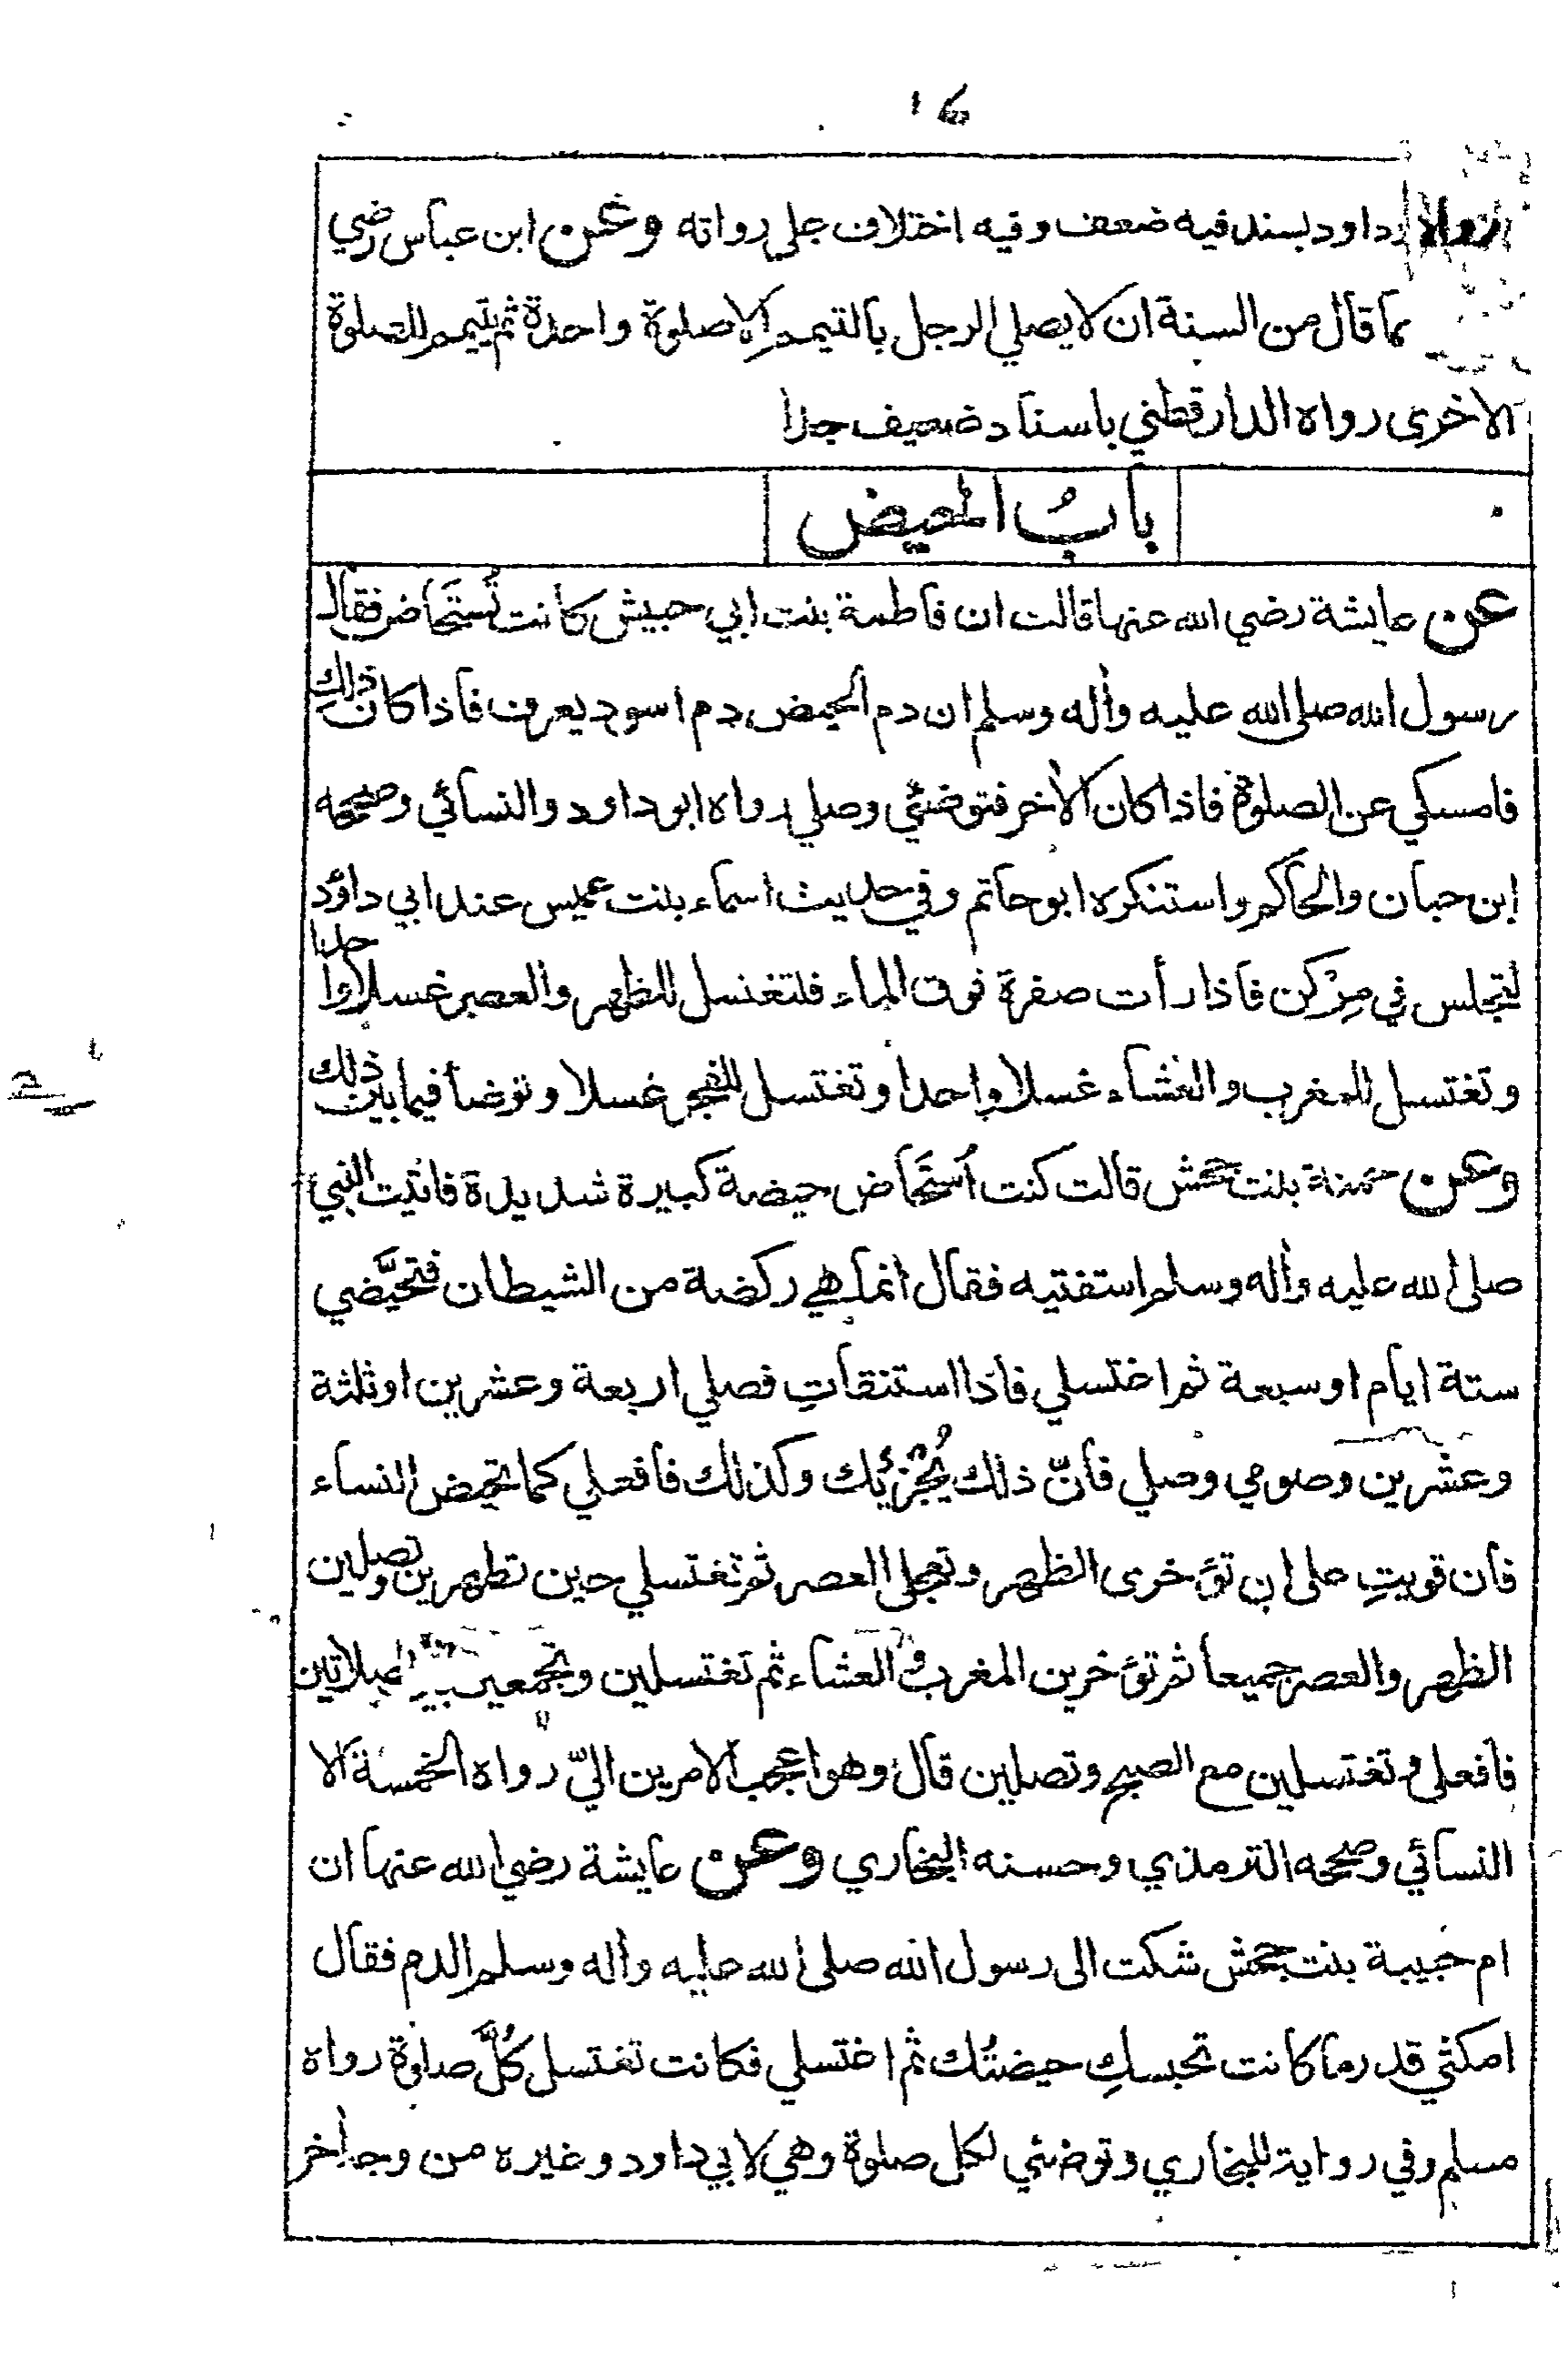 رواه داود بسند فيه ضعف وفيه اختلاف على رواته وعن ابن عباس رضي
ما قال من السنة ان لا يصلي الرجل بالتيمم الا صلوة واحدة ثم يتيمم للصلوة
الاخرى رواه الدارقطني باسناد ضعيف جدا
بابُ الحيض
عن عايشة رضي الله عنها قالت ان فاطمة بنت ابي حبيش كانت تُستَحاض فقال
رسول الله صلى الله عليه وأله وسلم ان دم الحيض دم اسود يعرف فاذا كان ذلك
فامسكي عن الصلوة فاذا كان الأخر فتوضئي وصلي رواه ابو داود والنسائي وصححه
ابن حبان والحاكم واستنكره ابو حاتم وفي حديث اسماء بنت عميس عند ابي داؤد
لتجلس في مِرْكن فاذا رأت صفرة فوق الماء فلتغتسل للظهر والعصر غسلا واحدا
وتغتسل للمغرب والعشاء غسلا واحدا وتغتسل للفجر غسلا وتوضأ فيما بين ذلك
وعن حمنة بنت جحش قالت كنت اُستَحاض حيضة كبيرة شديدة فاتيت النبي
صلى الله عليه وأله وسلم استفتيه فقال انما هي ركضة من الشيطان فتحيَّضي
ستة ايام او سبعة ثم اغتسلي فاذا استنقاتِ فصلي اربعة وعشرين او ثلثة
وعشرين وصومي وصلي فانّ ذلك يُجزئك وكذلك فافعلي كما تحيض النساء
فان قويتِ على ان تؤخرى الظهر وتعجلى العصر ثم تغتسلي حين تطهرين وتصلين
الظهر والعصر جميعا ثم تؤخرين المغرب و العشاء ثم تغتسلين وتجمعين بين الصلاتين
فافعلى وتغتسلين مع الصبح وتصلين قال وهو اعجب الامرين اليّ رواه الخمسة الا
النسائي وصححه الترمذي وحسنه البخاري وعن عايشة رضي الله عنها ان
ام حبيبة بنت جحش شكت الى رسول الله صلى الله عليه وأله وسلم الدم فقال
امكثي قدر ما كانت تحبسكِ حيضتُك ثم اغتسلي فكانت تغتسل كُلَّ صلوة رواه
مسلم وفي رواية للبخاري وتوضئي لكل صلوة وهي لابي داود وغيره من وجه أخر